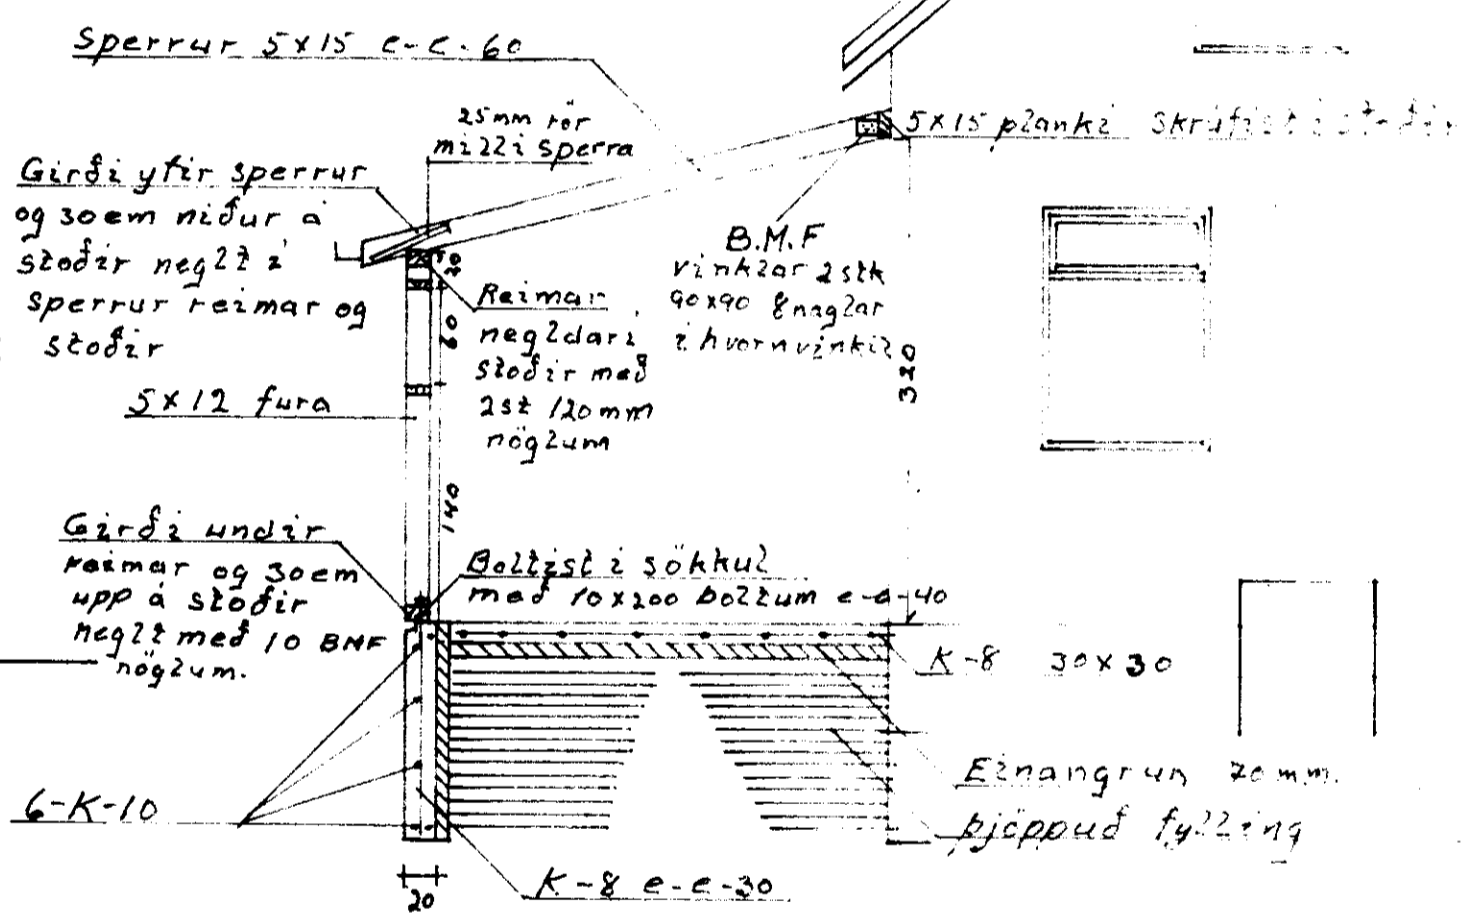 Sperrur 5x15 c-c-60
25mm rör
milli sperra
5x15 planki skrúfist í stoðir
Girði yfir sperrur
og 30cm niður á
stoðir neglt í
sperrur reimar og
stoðir
B.M.F
vinklar 2stk
90x90 8naglar
í hvorn vinkil
Reimar
negldar í
stoðir með
2st 120mm
nöglum
60
320
5x12 fura
140
Girði undir
reimar og 30cm
upp á stoðir
neglt með 10 BMF
nöglum.
Boltist í sökkul
með 10x200 boltum c-c-40
K-8 30x30
Einangrun 70mm.
þjöppuð fylling
6-K-10
K-8 c-c-30
20